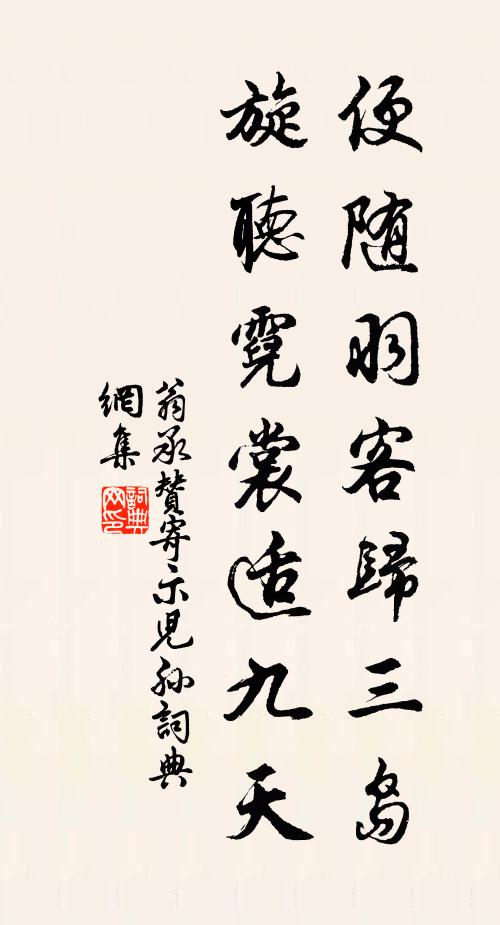 便随羽客歸三島
旋聽霓裳适九天
翁承贊寄示兒孫詞典
網集
詞典网印